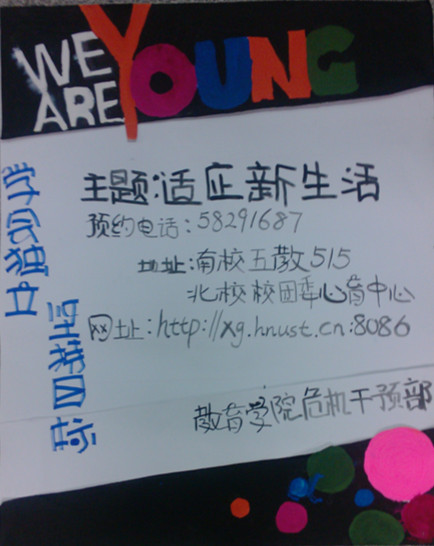 WE ARE YOUNG
学会独立
坚持目标
主题:适应新生活
预约电话:58291687
地址:南校五教515
北校校团委心育中心
网址:http://xg.hnust.cn:8086
教育学院危机干预部